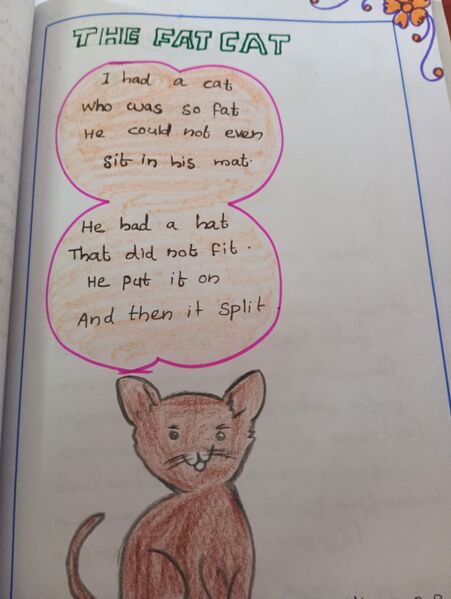 THE FAT CAT
I had a cat
who was so fat
He could not even
Sit in his mat.
He had a hat
That did not fit.
He put it on
And then it split.